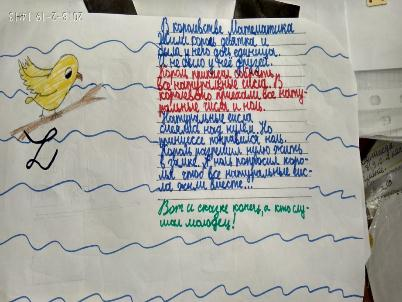 В королевстве Математика
жили король девятка, и
была у него дочь единица,
и не было у неё друзей.
Король приказал собрать
все натуральные числа. В
королевство приехали все нату-
ральные числа и ноль.
Натуральные числа
смеялись над нулем. Но
принцессе понравился ноль.
Король разрешил нулю жить
в замке. А ноль попросил коро-
ля чтоб все натуральные чис-
ла жили вместе...
Вот и сказке конец, а кто слу-
шал молодец!